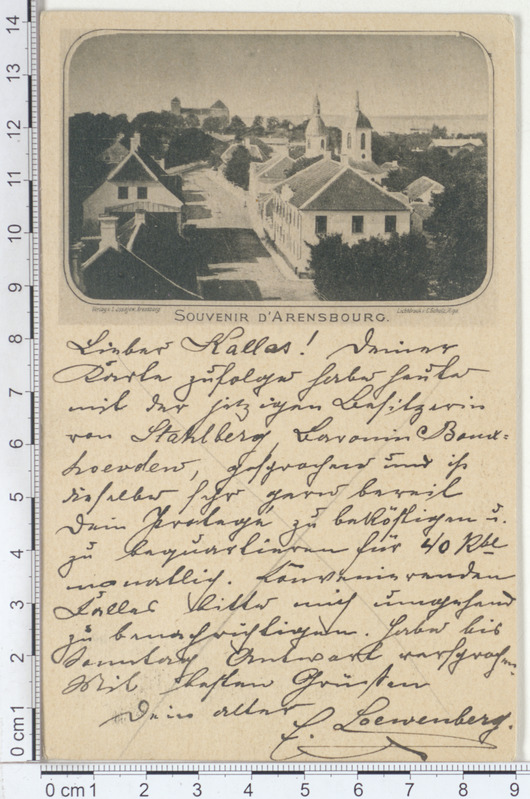 SOUVENIR D'ARENSBOURG.
Lieber Kallas! Deiner
Karte zufolge habe heute
mit der jetzigen Besitzerin
von Stahlberg, Baronin Boux-
hoevden, gesprochen und ist
dieselbe sehr gern bereit
Dein Protegé zu beköstigen u.
zu bequartieren für 40 Rbl
monatlich. Convenierenden
Falles bitte mich umgehend
zu benachrichtigen. Habe bis
Sonntag Antwort versprochen.
Mit besten Grüssen
Dein alter
C. Loewenberg.
14
13
12
11
10
9
8
7
6
5
4
3
2
1
0 cm
0 cm 1 2 3 4 5 6 7 8 9